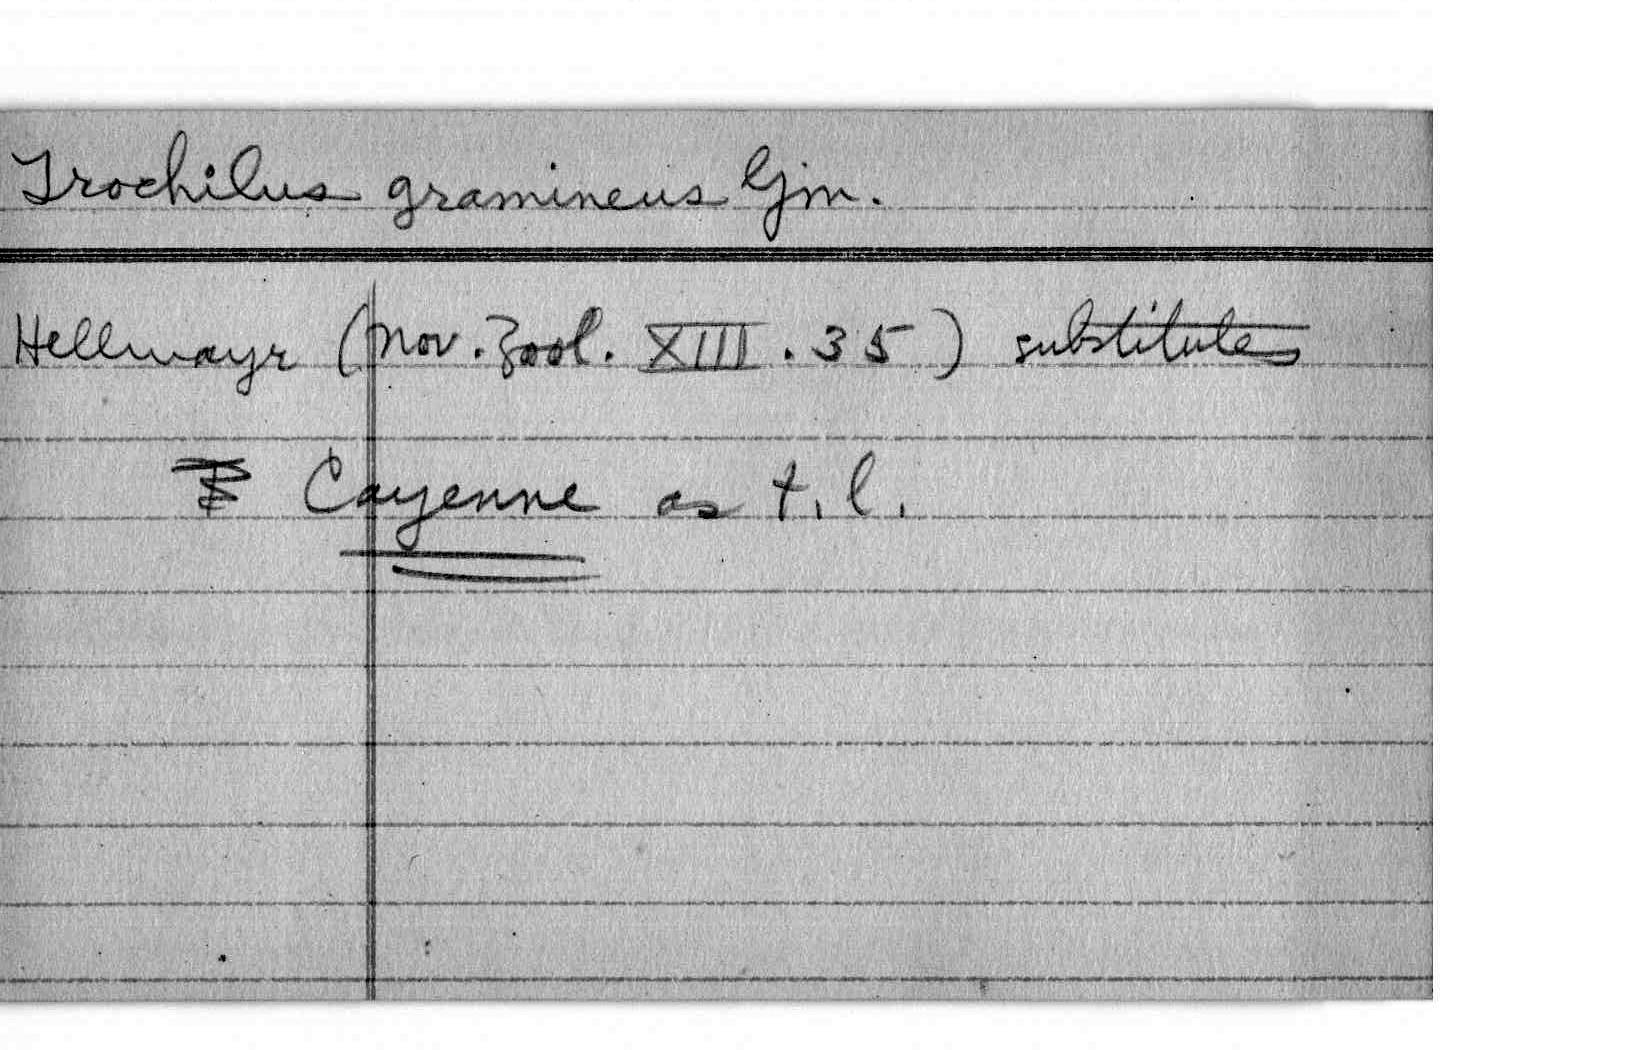 Trochilus gramineus Gm.
Hellmayr (Nov. Zool. XIII. 35) substitutes
Cayenne as t. l.